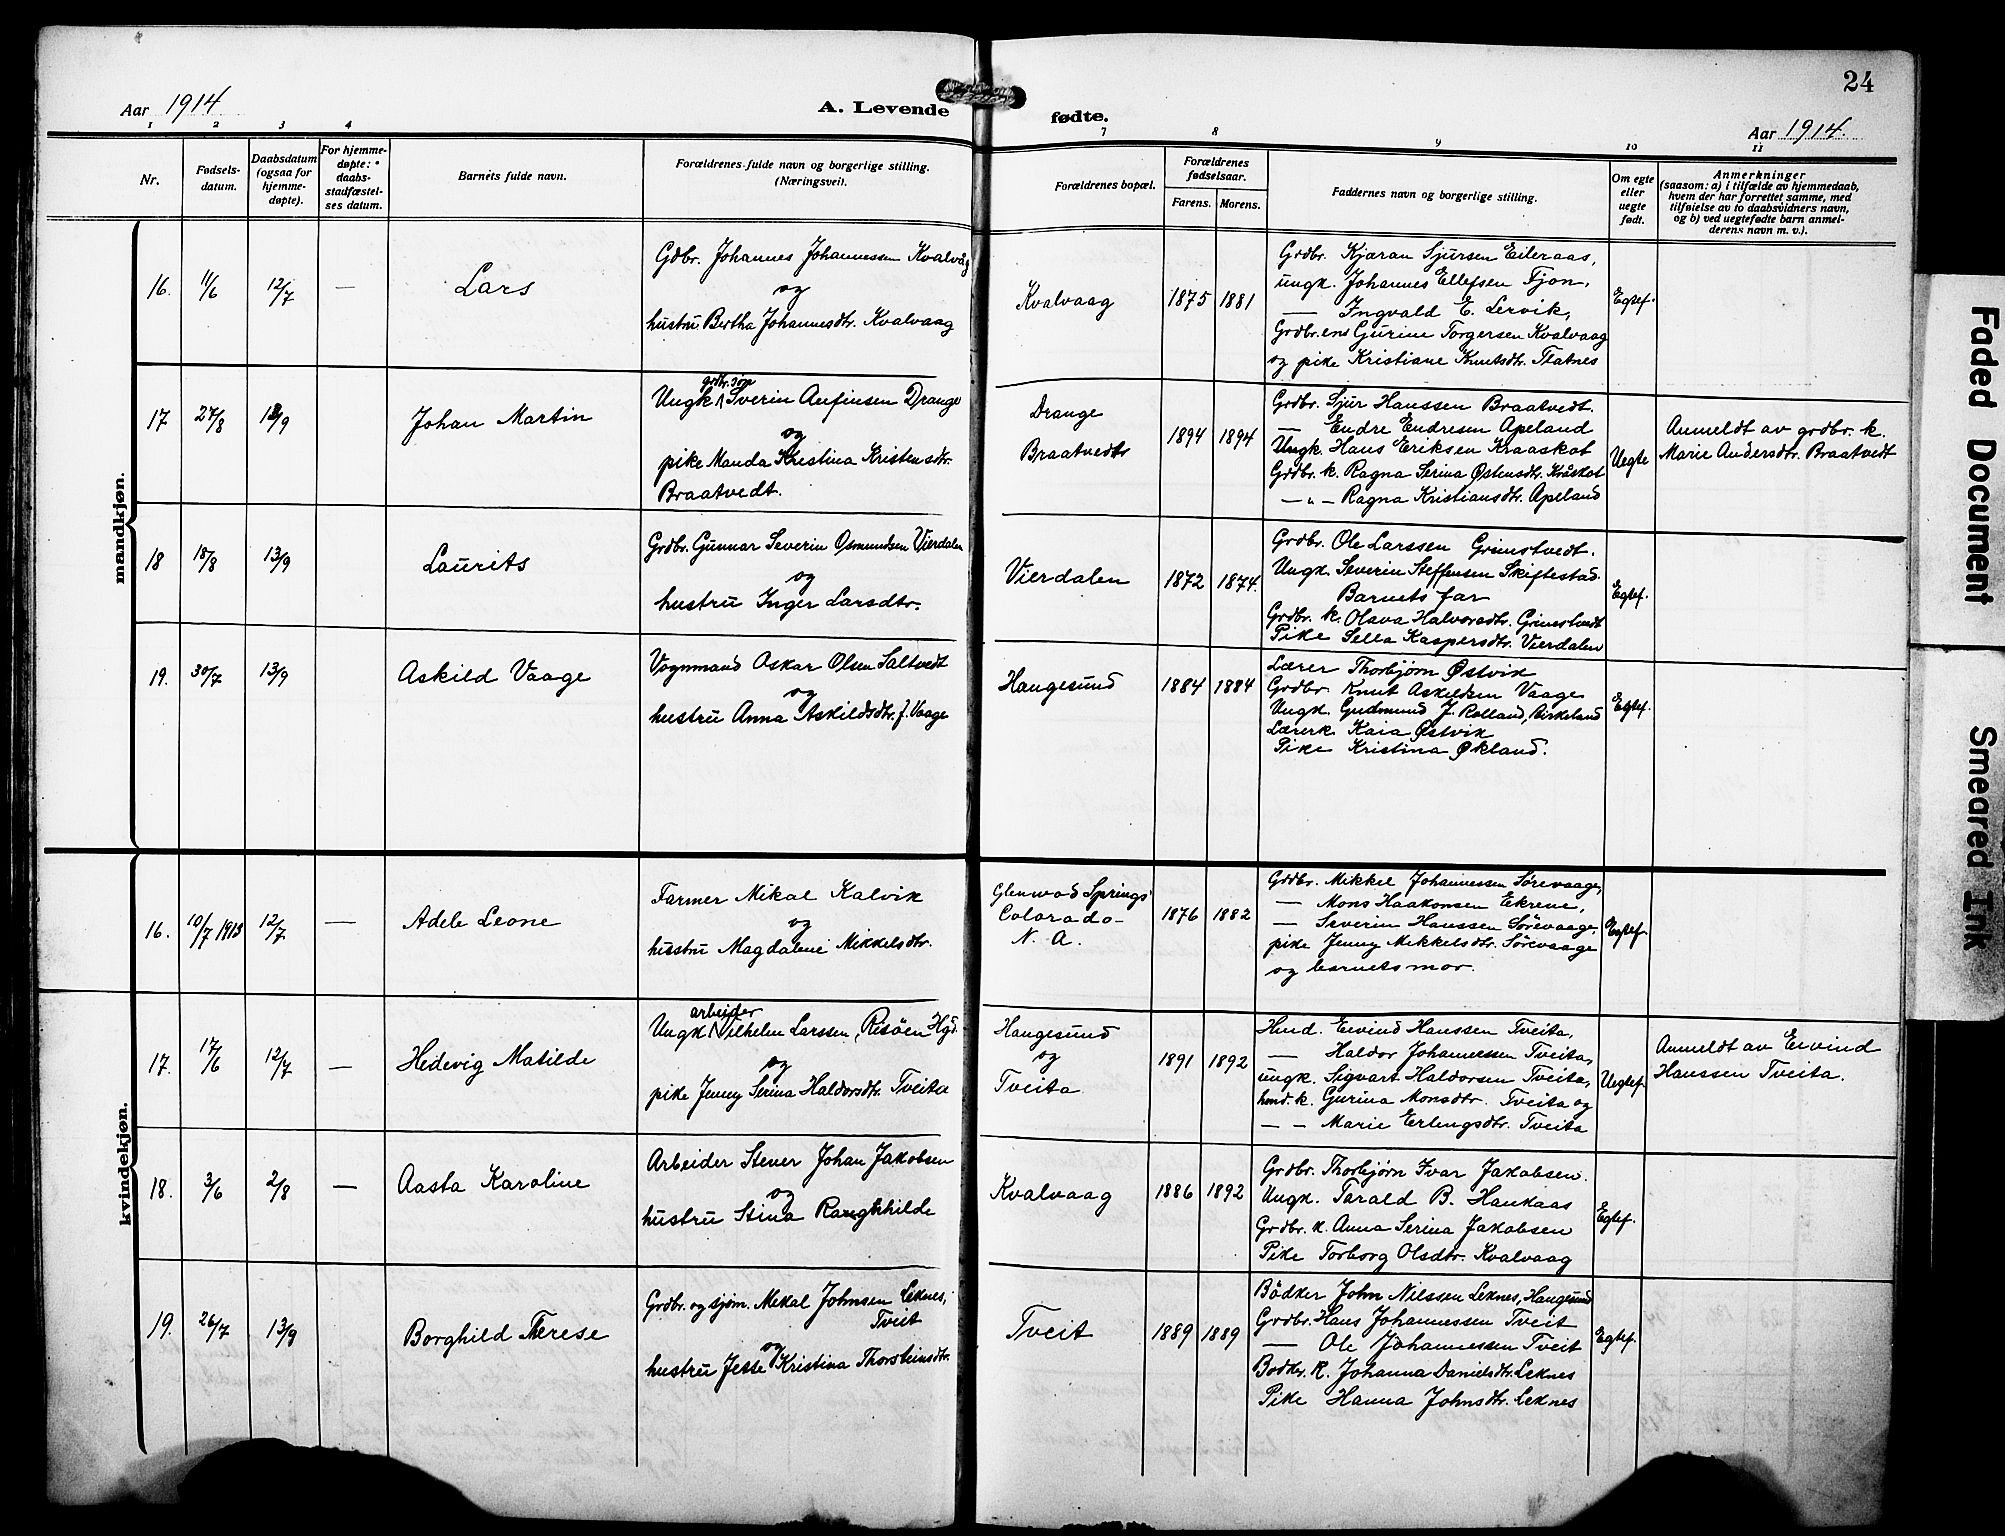 24
Aar 1914
A. Levende fødte.
Aar 1914.
1 2 3 4 7 8 9 10 11
Nr.
Fødsels-
datum.
Daabsdatum
(ogsaa for
hjemme-
døpte).
For hjemme-
døpte:
daabs-
stadfæstel-
ses datum.
Barnets fulde navn.
Forældrenes fulde navn og borgerlige stilling.
(Næringsvei).
Forældrenes bopæl.
Forældrenes
fødselsaar.
Farens. Morens.
Faddernes navn og borgerlige stilling.
Om egte
eller
uegte
født.
Anmerkninger
(saasom: a) i tilfælde av hjemmedaab,
hvem der har forrettet samme, med
tilføielse av to daabsvidners navn,
og b) ved uegtefødte barn anmel-
derens navn m. v.).
mandkjøn.
16. 11/6 12/7 — Lars
Gdbr. Johannes Johannessen Kvalvåg
og
hustru Bertha Johannesdtr. Kvalvaag
Kvalvaag 1875 1881
Grdbr. Kjaran Sjursen Eileraas,
ungk. Johannes Ellefsen Tjon,
— Ingvald E. Lervik,
Grdbr.ens Gurine Torgersen Kvalvaag
og pike Kristiane Knutsdtr. Tatnes
Egtef.
17 27/8 13/9 Johan Martin
grdbr. søn
Ungk. Sverin Anfinsen Drange
og
pike Manda Kristina Kristensdtr.
Braatvedt.
Drange
Braatvedt
1894 1894
Grdbr. Sjur Hanssen Braatvedt.
— Endre Endresen Apeland
Ungk. Hans Eriksen Kraaskot
Grdbr. k. Ragna Serina Østensdtr. Kråskot
— „ — Ragna Kristiansdtr. Apeland
Uegte
Anmeldt av grdbr. k.
Marie Andersdtr. Braatvedt
18 18/8 13/9 Laurits
Grdbr. Gunnar Severin Osmundsen Vierdalen
og
hustru Inger Larsdtr.
Vierdalen 1872 1874.
Grdbr. Ole Larssen Grimstvedt.
Ungk. Severin Steffensen Skiftestad.
Barnets far
Grdbr. k. Olava Halvorsdtr. Grimstvedt
Pike Sella Kaspersdtr. Vierdalen
Egtef.
19. 30/7 13/9 Askild Vaage
Vognmand Oskar Olsen Saltvedt
og
hustru Anna Askildsdtr. f. Vaage
Haugesund 1884 1884
Lærer Thorbjørn Østvik
Grdbr. Knut Askildsen Vaage
Ungk. Gudmund J. Rolland, Birkeland
Lærerk. Kaia Østvik
Pike Kristina Økland.
Egtef.
kvindekjøn.
16. 10/7 1913 12/7 — Adele Leone
Farmer Mikal Kalvik
og
hustru Magdalene Mikkelsdtr.
Glenwod Springs
Colorado—
N. A.
1876 1882
Grdbr. Mikkel Johannessen Sørevaage,
— Mons Haakonsen Ekrene,
— Severin Hanssen Sørevaage,
pike Jenny Mikkelsdtr. Sørevaage
og barnets mor.
Egtef.
17. 17/6 12/7 — Hedevig Matilde
arbeider
Ungk. Vilhelm Larssen, Risøen Hgd.
og
pike Jenny Serina Haldorsdtr. Tveita
Haugesund
og
Tveita
1891 1892
Hmd. Eivind Hanssen Tveita,
— Haldor Johannessen Tveita,
ungk. Sigvart Haldorsen Tveita,
hmd. k. Gurina Monsdtr. Tveita og
— — Marie Erlingsdtr. Tveita
Uegtef.
Anmeldt av Eivind
Hanssen Tveita.
18. 3/6 2/8 — Aasta Karoline
Arbeider Stener Johan Jakobsen
og
hustru Stina Ranghilde
Kvalvaag 1886 1892
Grdbr. Thorbjørn Ivar Jakobsen.
Ungk. Tarald B. Haukaas
Grdbr. k. Anna Serina Jakobsen
Pike Torborg Olsdtr. Kvalvaag
Egtef.
19. 26/7 13/9 Borghild Therese
Grdbr. og sjøm. Mekal Johnsen Leknes,
Tveit
og
hustru Jette Kristina Thorsteinsdtr.
Tveit 1889 1889
Bödker John Nilssen Leknes, Haugesund
Grdbr. Hans Johannessen Tveit
— Ole Johannessen Tveit
Bødker. K. Johanna Danielsdtr. Leknes
Pike Hanna Johnsdtr. Leknes
Egtef.
Faded Document
Smeared Ink